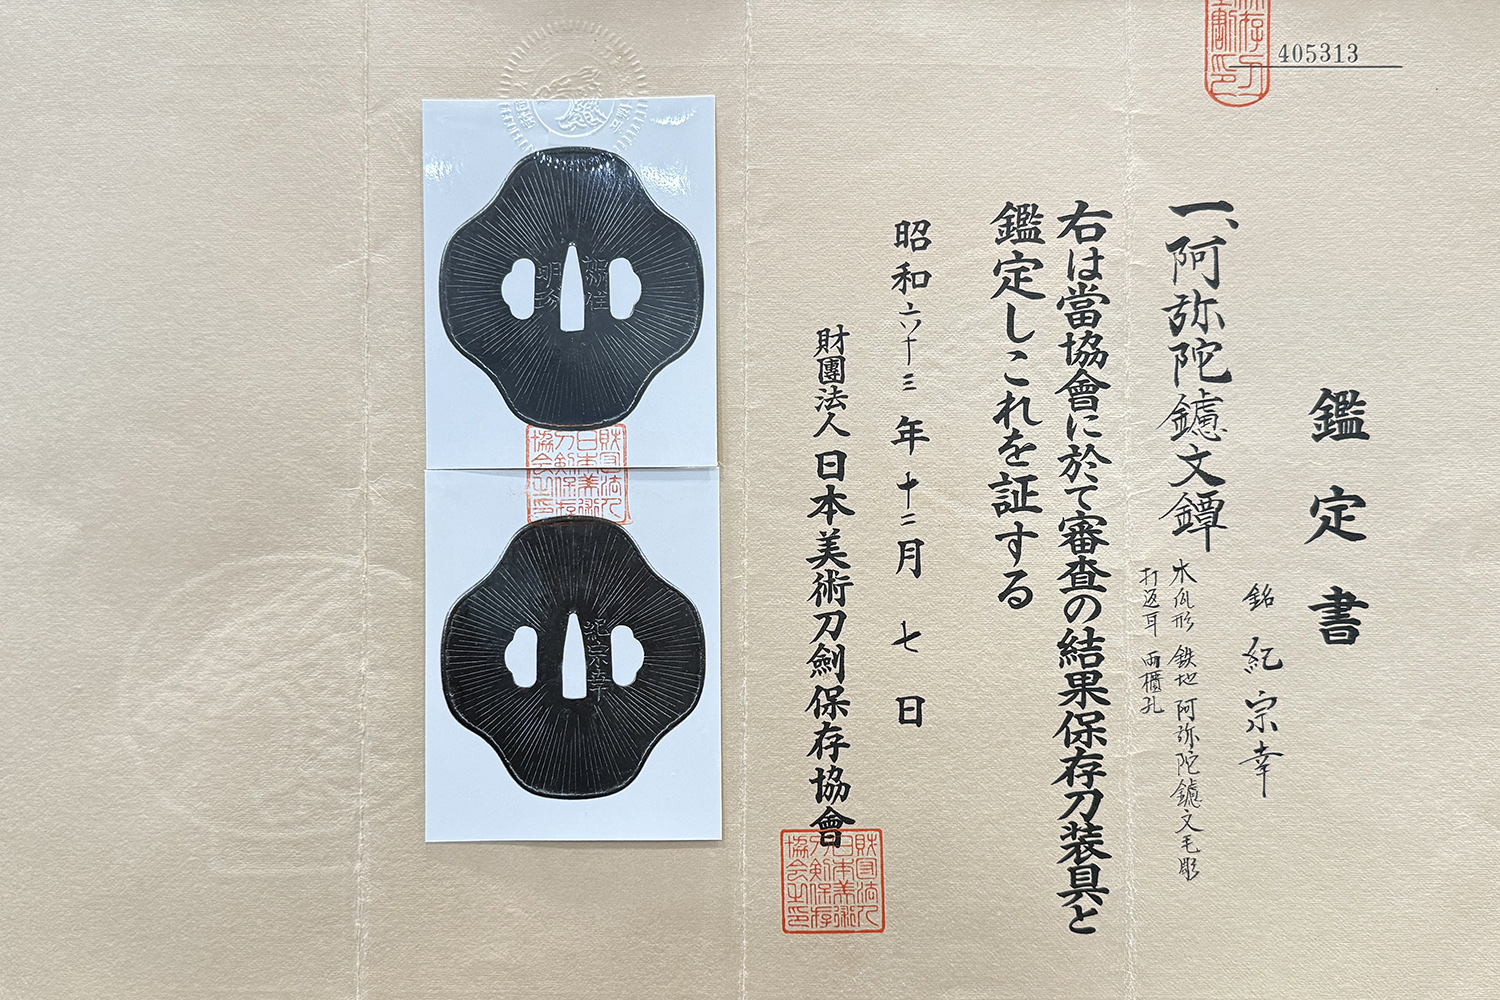 405313
鑑定書
銘 紀宗幸
一、阿弥陀鑢文鐔
木瓜形 鉄地 阿弥陀鑢文毛彫
打返耳 両櫃孔
右は當協會に於て審査の結果保存刀装具と
鑑定しこれを証する
昭和六十三年十二月七日
財團法人日本美術刀劍保存協會
財団法人
日本美術
刀剣保存
協会之印
財団法人
日本美術
刀剣保存
協会之印
明珍
紀宗